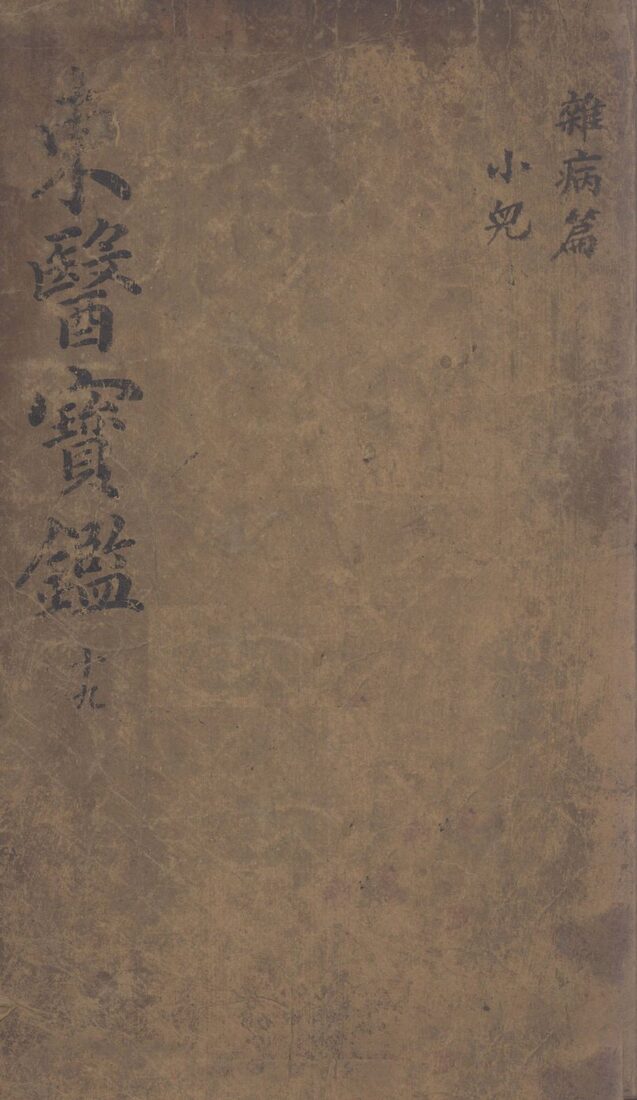 雜病篇
小兒
東醫寶鑑 十九